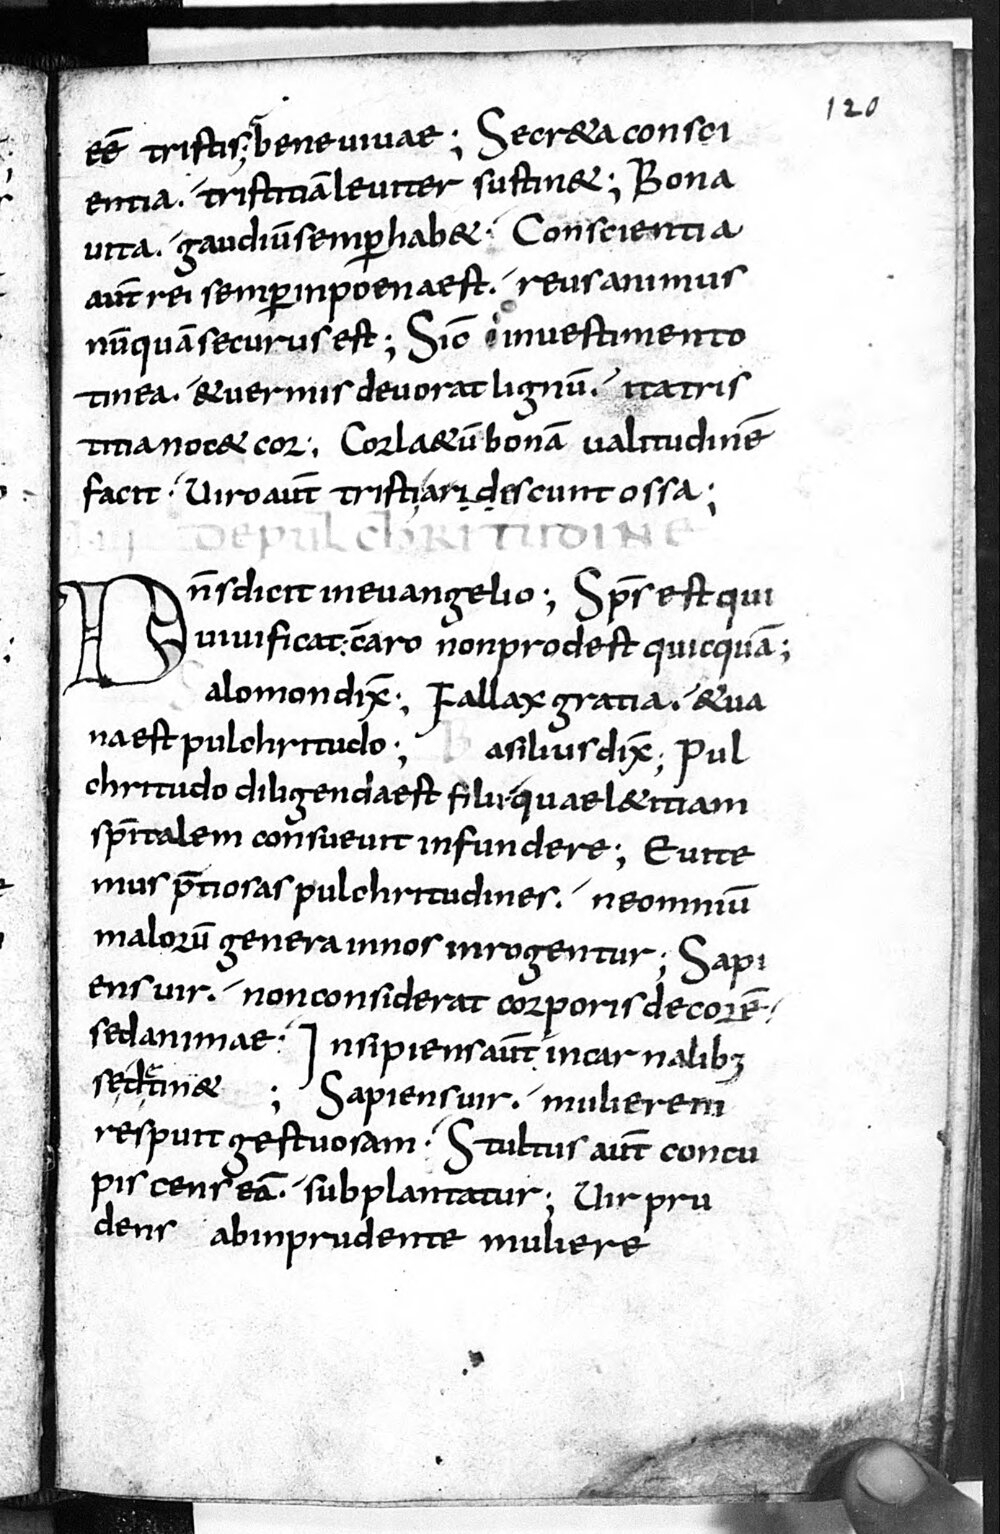 120
eē tristis; bene uiuae; Secr&a consci
entia. tristitiā leuiter sustin&; Bona
uita. gaudiū semp hab&. Conscientia
aūt rei semp in poena est. reus animus
nūquā securus est; Sic̄ in uestimento
tinea. & uermis deuorat lignū. ita tris
titia noc& cor; Cor la&ū bonā ualitudinē
facit. Uiro aūt tristi aridescunt ossa;
DE PULCHRITUDINE
Dn̄s dicit in euangelio; Sp̄s est qui
uiuificat: caro non prodest quicquā;
Salomon dix̄; Fallax gratia. & ua
na est pulchritudo; Basilius dix̄; Pul
chritudo diligenda est filii. quae l&itiam
sp̄italem consueuit infundere; Euite
mus p̄tiosas pulchritudines. ne omniū
malorū genera in nos inrogentur; Sapi
ens uir. non considerat corporis decorē.
sed animae. Insipiens aūt in carnalib;
sed tin&; Sapiens uir. mulierem
respuit gestuosam. Stultus aūt concu
piscens eā. subplantatur; Uir pru
dens ab inprudente muliere